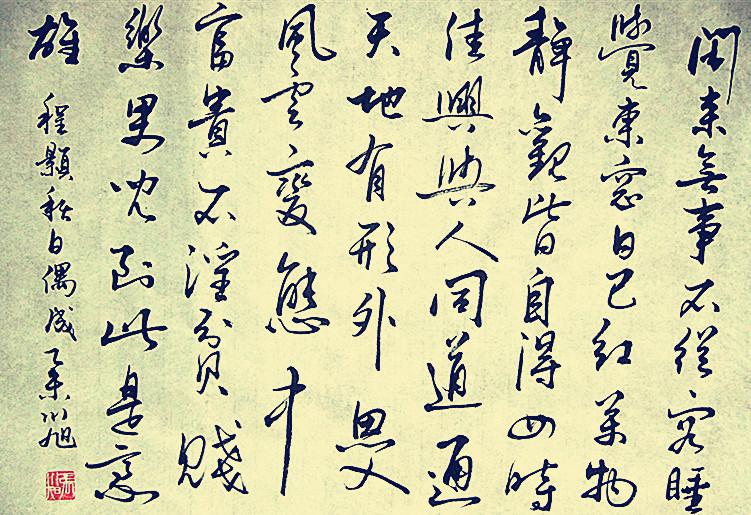 閑來無事不從容睡
覺東窗日已紅萬物
靜觀皆自得四時
佳興與人同道通
天地有形外思入
風雲變態中
富貴不淫貧賤
樂男兒到此是豪
雄 程顥秋日偶成 乙未川旭